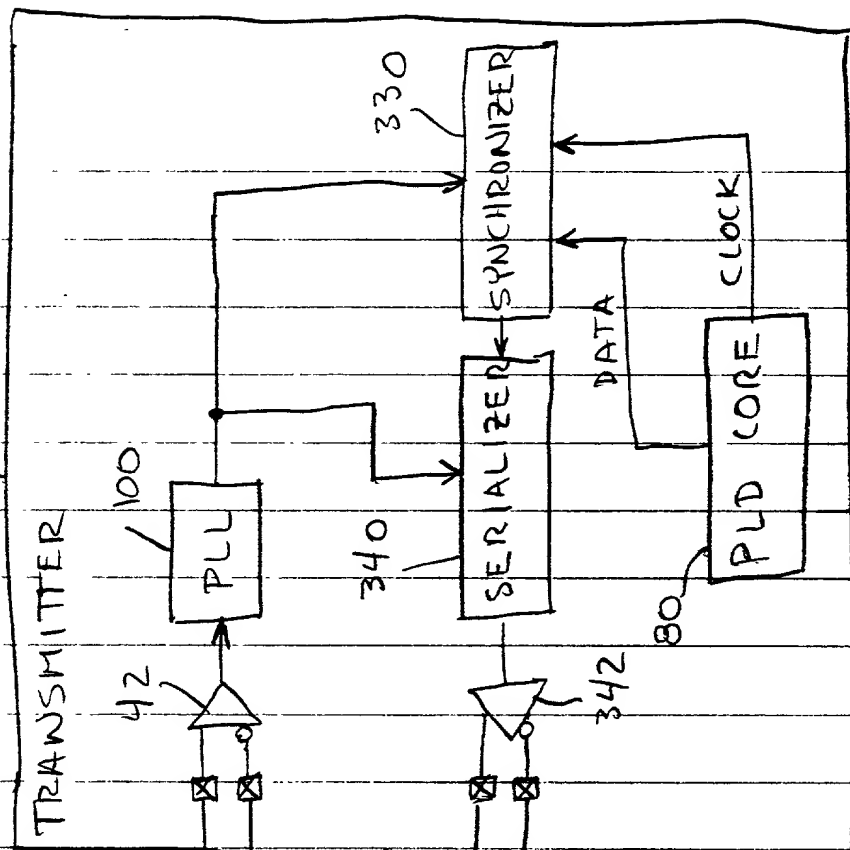 TRANSMITTER
42
100
PLL
330
SYNCHRONIZER
340
SERIALIZER
342
DATA
CLOCK
80
PLD CORE